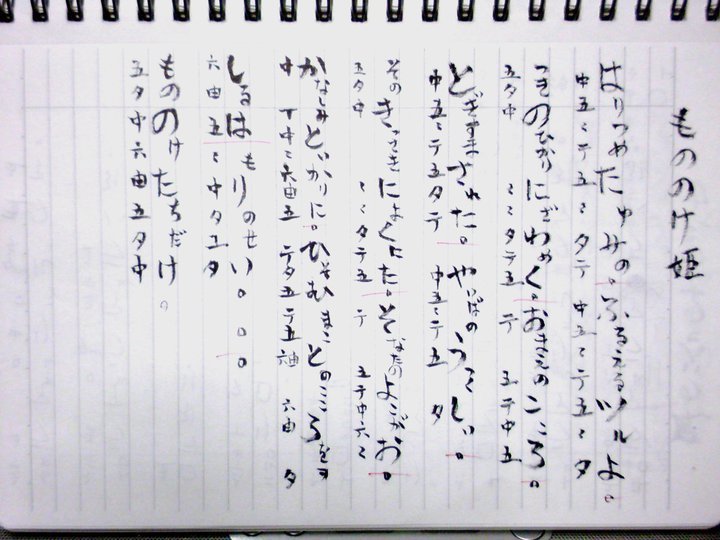 もののけ姫
はりつめたゆみの。ふるえるツルよ。
中五ミテ五ミタテ 中五ミテ五ミタ
つきのひかりにざわめく。おまえのこころ。
五タ中 ミミタテ五テ 五テ中五
とぎすまされた。やいばのうつくしい。
中五ミテ五タテ 中五ミテ五タ
そのきっさきによくにた。そなたのよこがお。
五タ中 ミミタテ五テ 五テ中六ミ
かなしみといかりに。ひそむまことのこころをヲ
中 丁中ミ六由五 テタ五テ五 六由 タ
しるはもりのせい。。。
六由五ミ中タエタ
もののけたちだけ。
五タ中六由五タ中